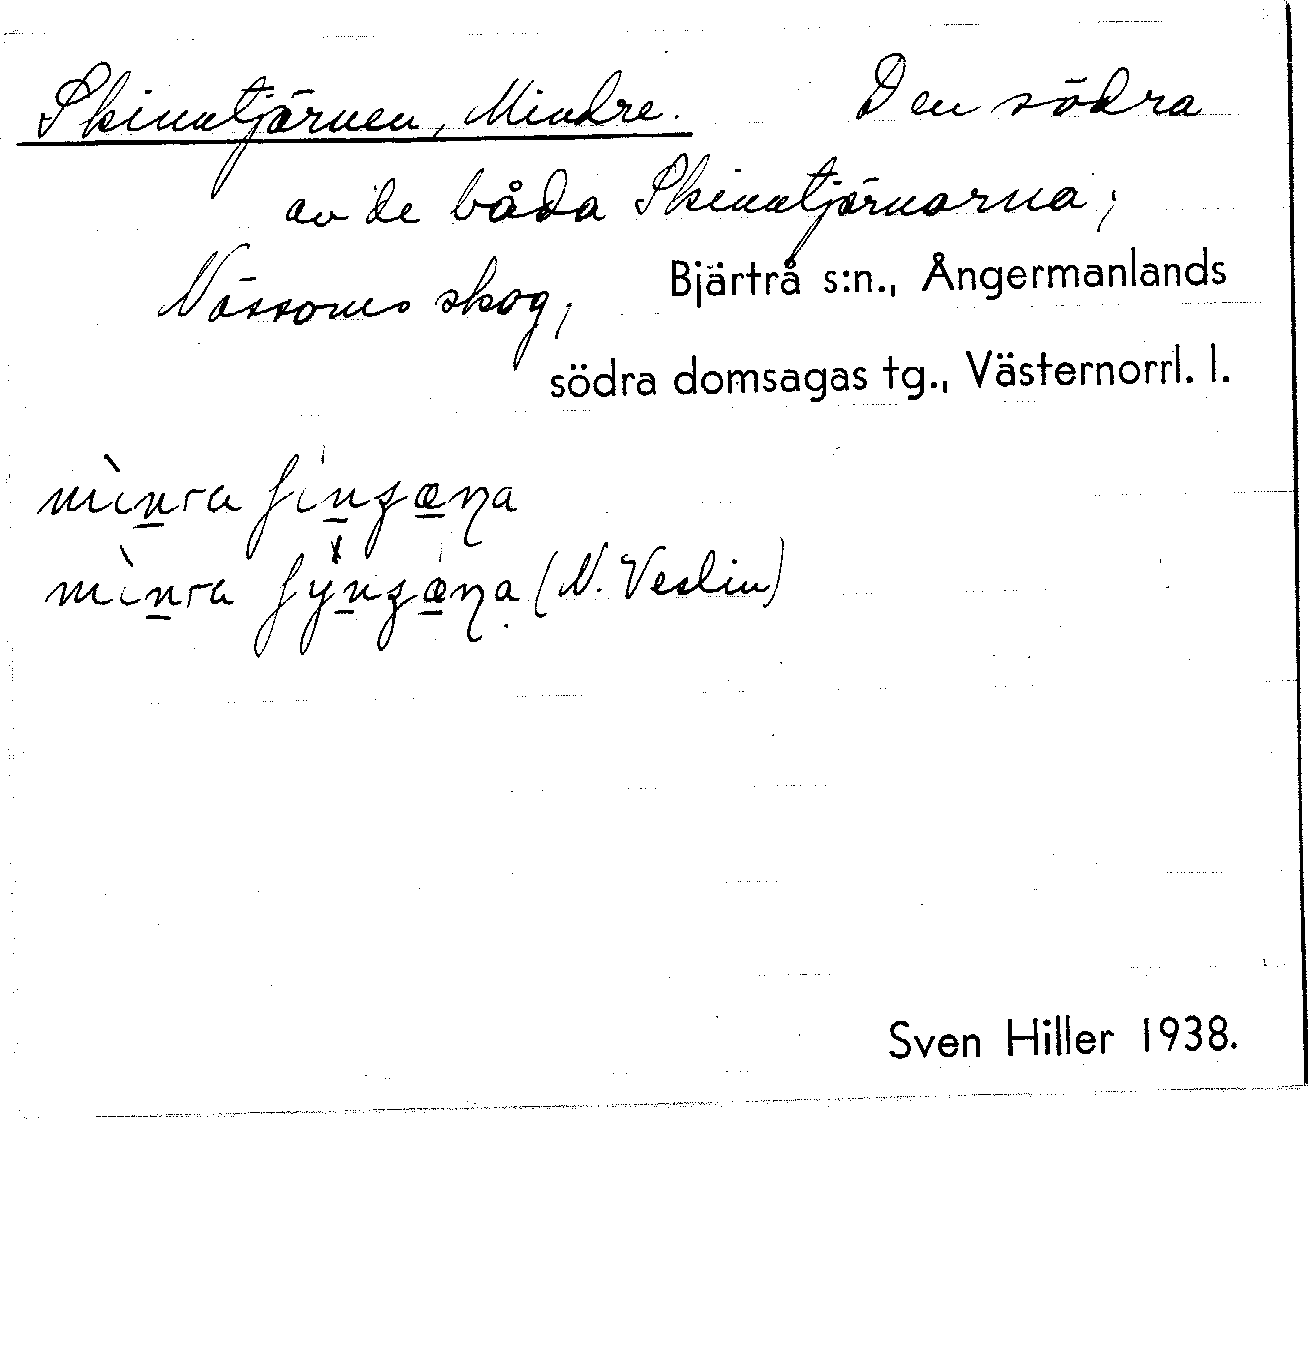 Skinntjärnen, Mindre. Den södra
av de båda Skinntjärnarna,
Nässoms skog, Bjärtrå s:n., Ångermanlands
södra domsagas tg., Västernorrl. l.
(N. Veslin)
Sven Hiller 1938.